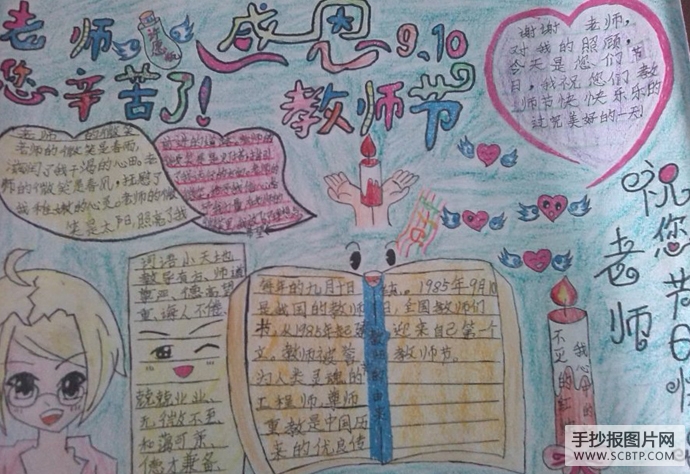 老师
您辛苦了!
许愿瓶
感恩
9.10
教师节
谢谢老师,
对我的照顾,
今天是您们节
日,我祝您们教
师节快快乐乐的
过完美好的一天!
老师的微笑
老师的微笑是春雨,
滋润了我干渴的心田,老
师的微笑是春风,抚慰了
我稚嫩的心灵,老师的微
笑是太阳,照亮了我
词语小天地
教学有方、师道
尊严、德高望
重、诲人不倦、
兢兢业业、
无微不至
和蔼可亲、
德才兼备
教师节的由来
每年的九月十日
是我国的教师
节。从1985年起
文。教师被誉
为人类灵魂的
工程师,尊师
重教是中国历
来的优良传
统。1985年9月10
日,全国教师们
迎来自己第一个
教师节。
我心中的
不灭的红
祝您节日快
老师
手抄报图片网
WWW.SCBTP.COM